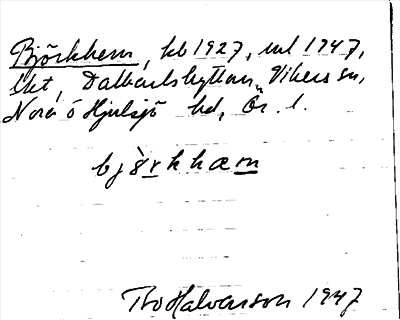 Björkhem, kb 1927, uul 1947,
lht, Dalkarlshyttan, Vikers sn,
Nora o Hjulsjö hd, Ör. l.
bjòrkhæm
Bo Halvarson 1947